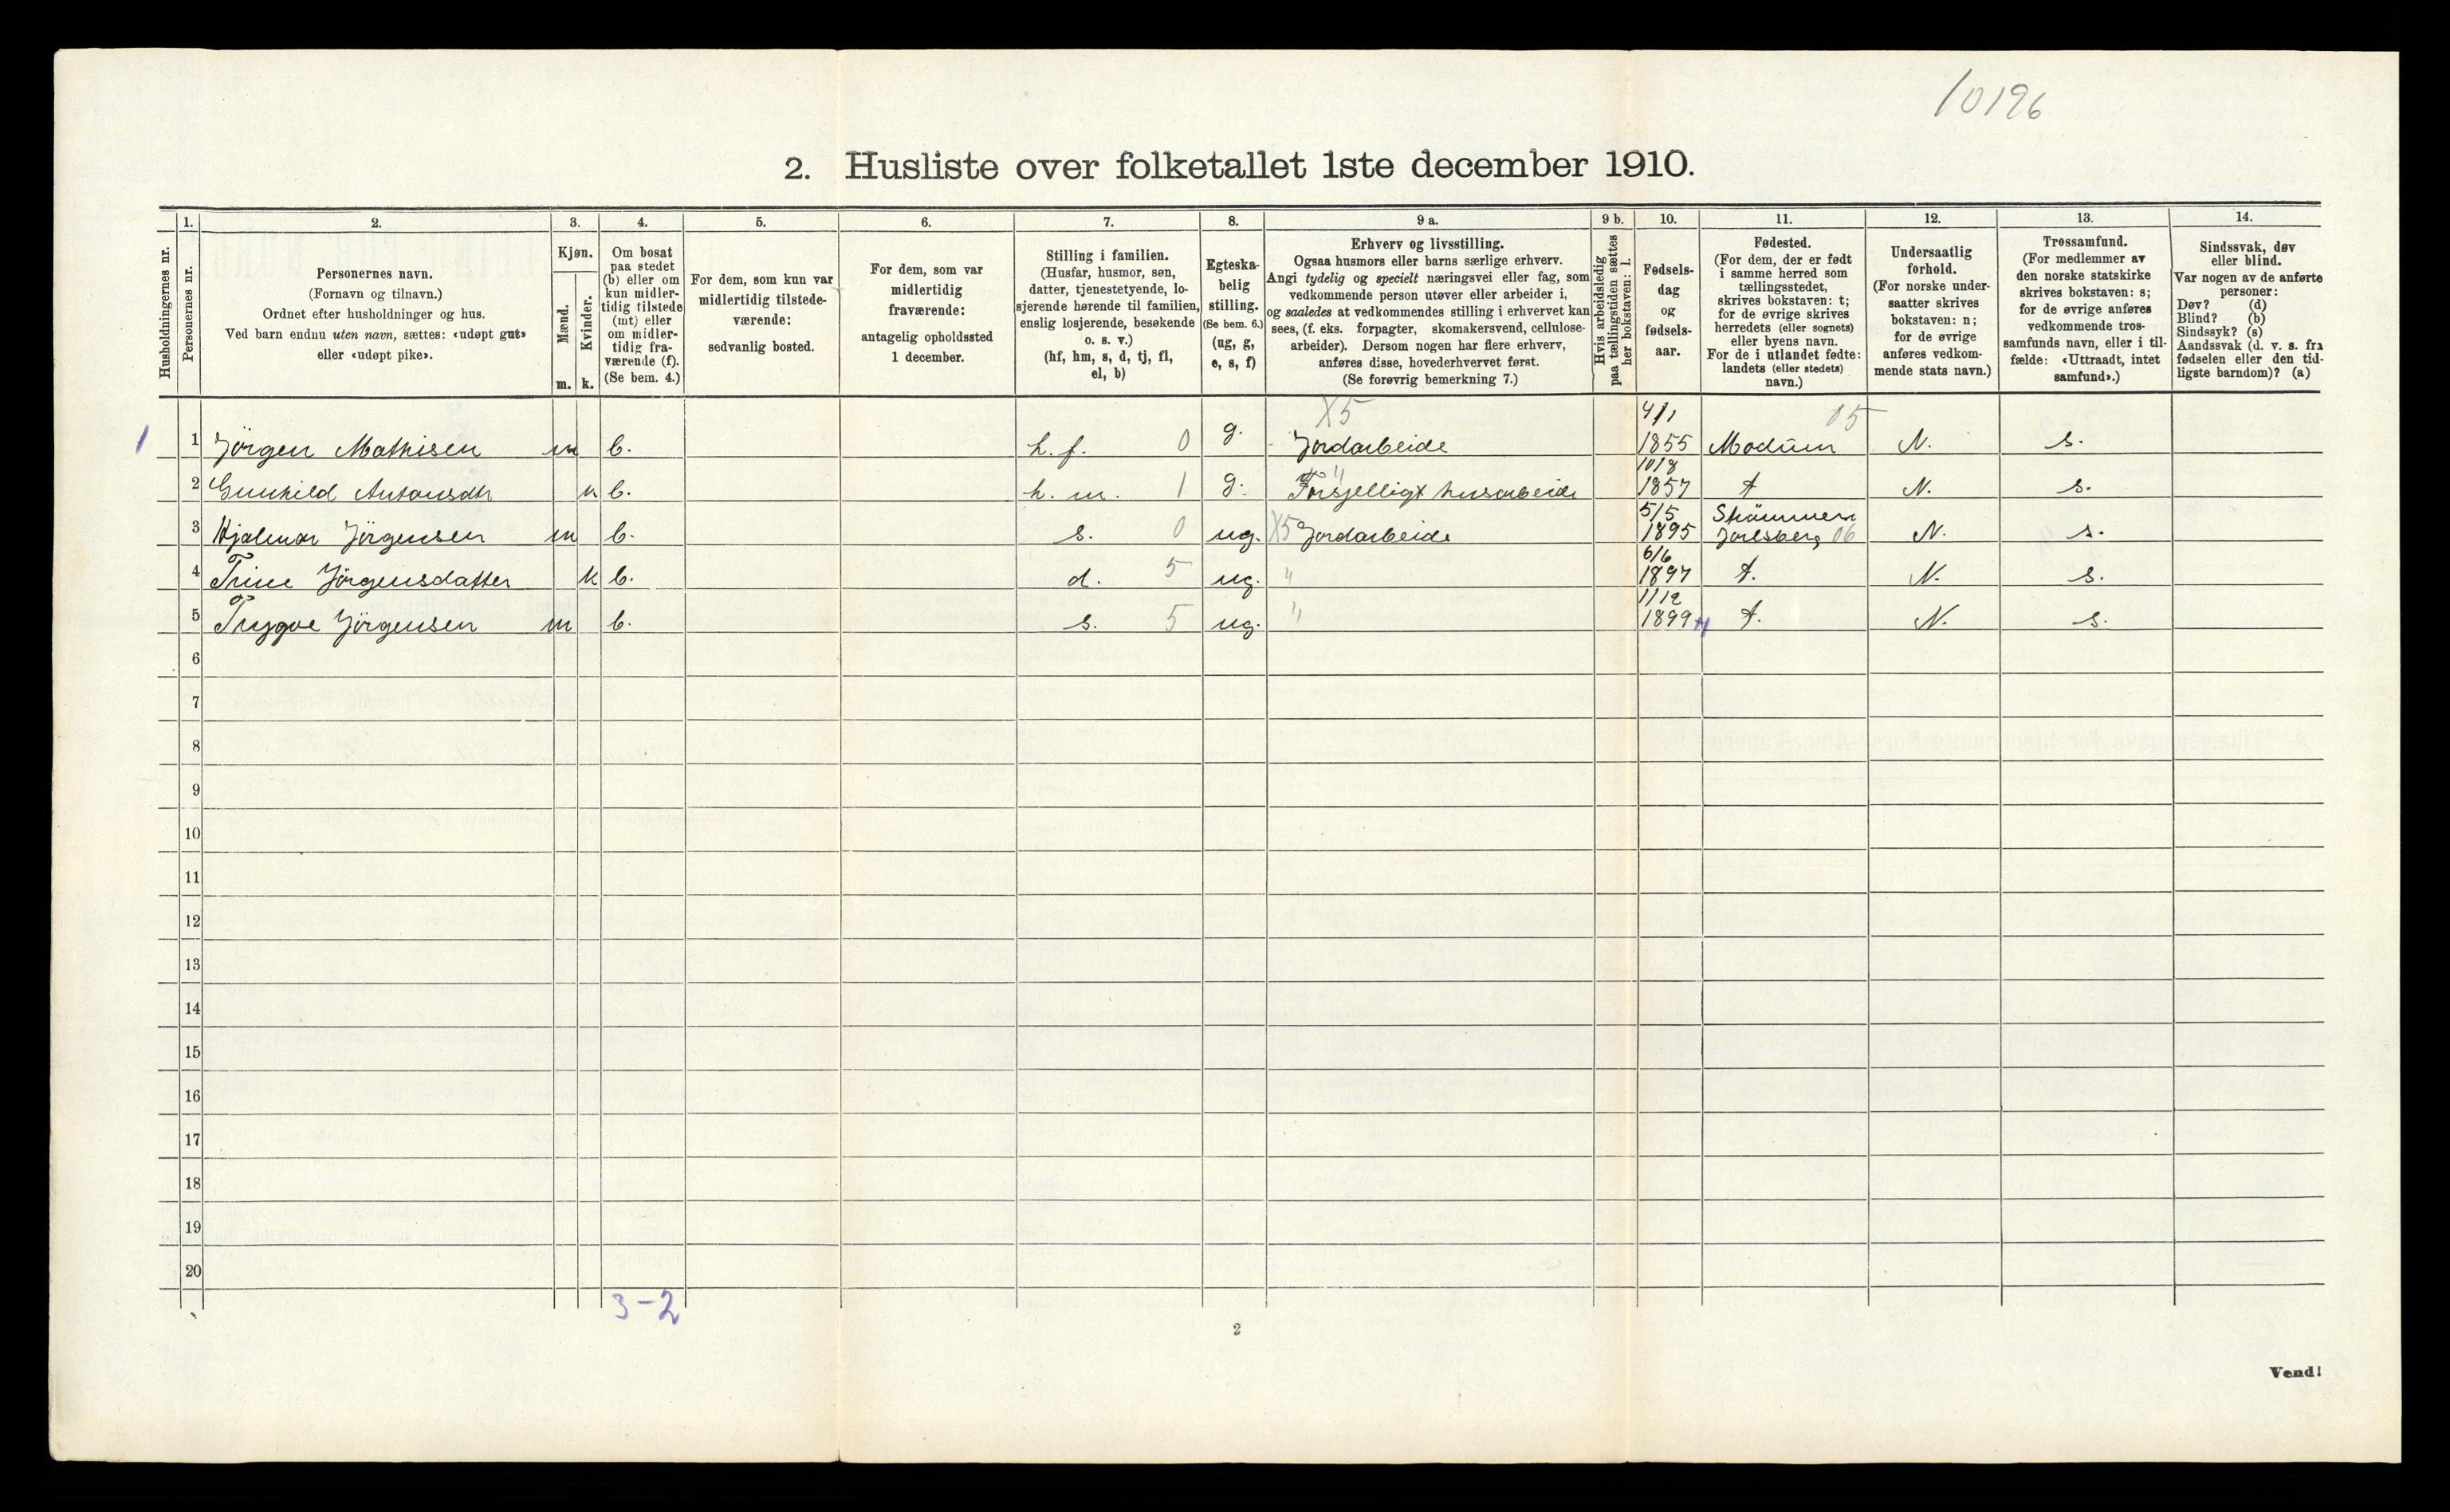 10196
2. Husliste over folketallet 1ste december 1910.
Husholdningernes nr.
1.
Personernes nr.
2.
Personernes navn.
(Fornavn og tilnavn.)
Ordnet efter husholdninger og hus.
Ved barn endnu uten navn, sættes: «udøpt gut»
eller «udøpt pike».
3.
Kjøn.
Mænd.
Kvinder.
m. k.
4.
Om bosat
paa stedet
(b) eller om
kun midler-
tidig tilstede
(mt) eller
om midler-
tidig fra-
værende (f).
(Se bem. 4.)
5.
For dem, som kun var
midlertidig tilstede-
værende:
sedvanlig bosted.
6.
For dem, som var
midlertidig
fraværende:
antagelig opholdssted
1 december.
7.
Stilling i familien.
(Husfar, husmor, søn,
datter, tjenestetyende, lo-
sjerende hørende til familien,
enslig losjerende, besøkende
o. s. v.)
(hf, hm, s, d, tj, fl,
el, b)
8.
Egteska-
belig
stilling.
(Se bem. 6.)
(ug, g,
e, s, f)
9 a.
Erhverv og livsstilling.
Ogsaa husmors eller barns særlige erhverv.
Angi tydelig og specielt næringsvei eller fag, som
vedkommende person utøver eller arbeider i,
og saaledes at vedkommendes stilling i erhvervet kan
sees, (f. eks. forpagter, skomakersvend, cellulose-
arbeider). Dersom nogen har flere erhverv,
anføres disse, hovederhvervet først.
(Se forøvrig bemerkning 7.)
9 b.
Hvis arbeidsledig
paa tællingstiden sættes
her bokstaven: l.
10.
Fødsels-
dag
og
fødsels-
aar.
11.
Fødested.
(For dem, der er født
i samme herred som
tællingsstedet,
skrives bokstaven: t;
for de øvrige skrives
herredets (eller sognets)
eller byens navn.
For de i utlandet fødte:
landets (eller stedets)
navn.)
12.
Undersaatlig
forhold.
(For norske under-
saatter skrives
bokstaven: n;
for de øvrige
anføres vedkom-
mende stats navn.)
13.
Trossamfund.
(For medlemmer av
den norske statskirke
skrives bokstaven: s;
for de øvrige anføres
vedkommende tros-
samfunds navn, eller i til-
fælde: «Uttraadt, intet
samfund».)
14.
Sindssvak, døv
eller blind.
Var nogen av de anførte
personer:
Døv? (d)
Blind? (b)
Sindssyk? (s)
Aandssvak (d. v. s. fra
fødselen eller den tid-
ligste barndom)? (a)
X5 4/1 05
1 1 Jörgen Mathisen m b. h. f. 0 g. Jordarbeide 1855 Modum N. s.
" 10/8
2 Gunhild Antonsdtr k b. h. m. 1 g. Forsjelligt husarbeide 1857 t N. s.
5/5 Strömmen
3 Hjalmar Jörgensen m b. s. 0 ug. X5 Jordarbeide 1895 Jarlsberg 06 N. s.
6/6
4 Trine Jörgensdatter k b. d. 5 ug. " 1897 t. N. s.
1/12
5 Trygve Jörgensen m b. s. 5 ug. " 1899 t. N. s.
6
7
8
9
10
11
12
13
14
15
16
17
18
19
20
3-2
2
Vend!